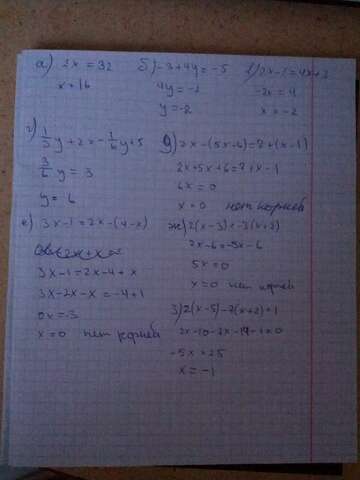 а) 2x = 32
x = 16
б) -3+4y = -5
4y = -2
y = -2
-2x = 4
x = -2
г) 1/3 y + 2 = -1/6 y + 5
3/6 y = 3
y = 6
д) 2x - (5x + 6) = 7 + (x - 1)
2x + 5x + 6 = 7 + x - 1
6x = 0
x = 0 нет корней
е) 3x - 1 = 2x - (4 - x)
3x - 1 = 2x - 4 + x
3x - 2x - x = -4 + 1
0x = -3
x = 0 нет корней
ж) 2(x - 3) = -3(x + 2)
2x - 6 = -3x - 6
5x = 0
x = 0 нет корней
-5x = 25
x = -1